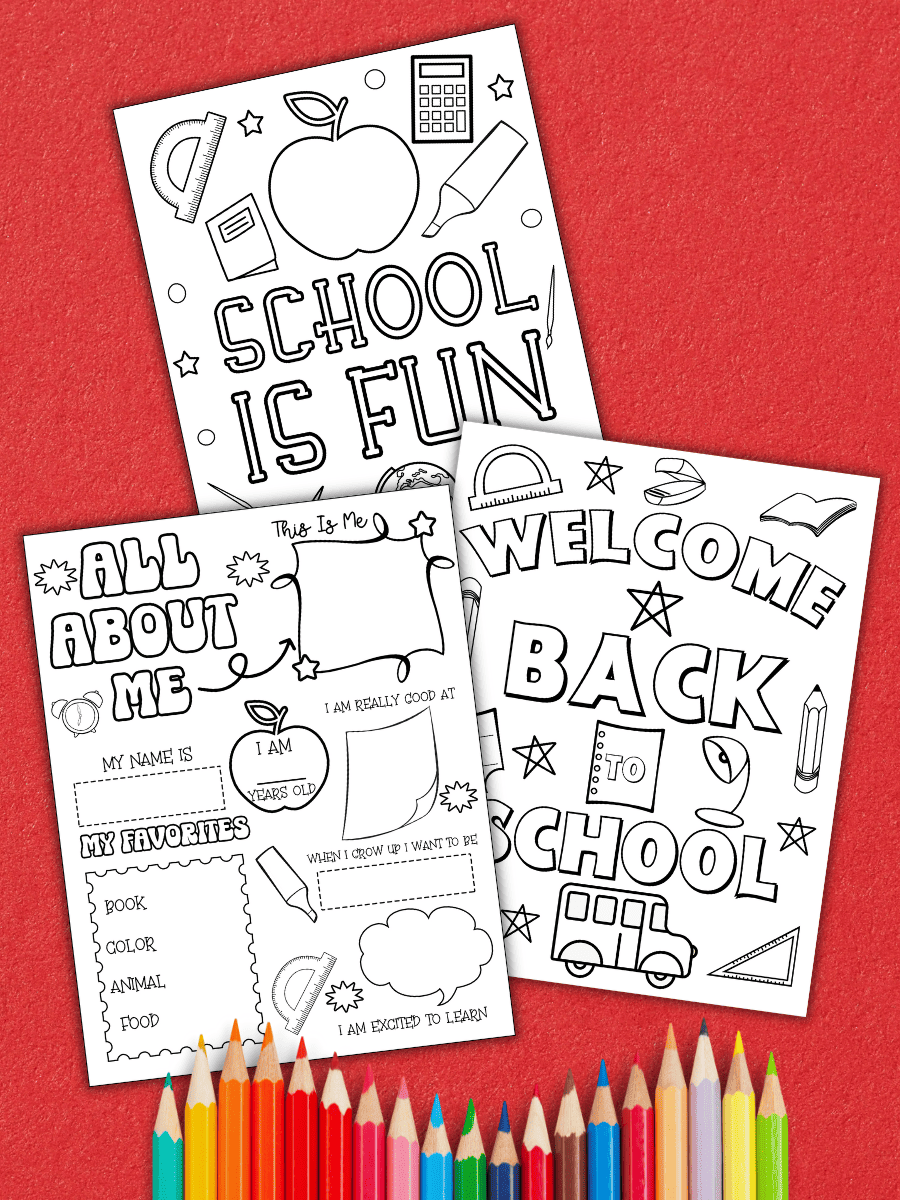 SCHOOL
IS FUN
ALL
ABOUT
ME
This Is Me
MY NAME IS
I AM
YEARS OLD
I AM REALLY GOOD AT
MY FAVORITES
BOOK
COLOR
ANIMAL
FOOD
WHEN I GROW UP I WANT TO BE
I AM EXCITED TO LEARN
WELCOME
BACK
TO
SCHOOL